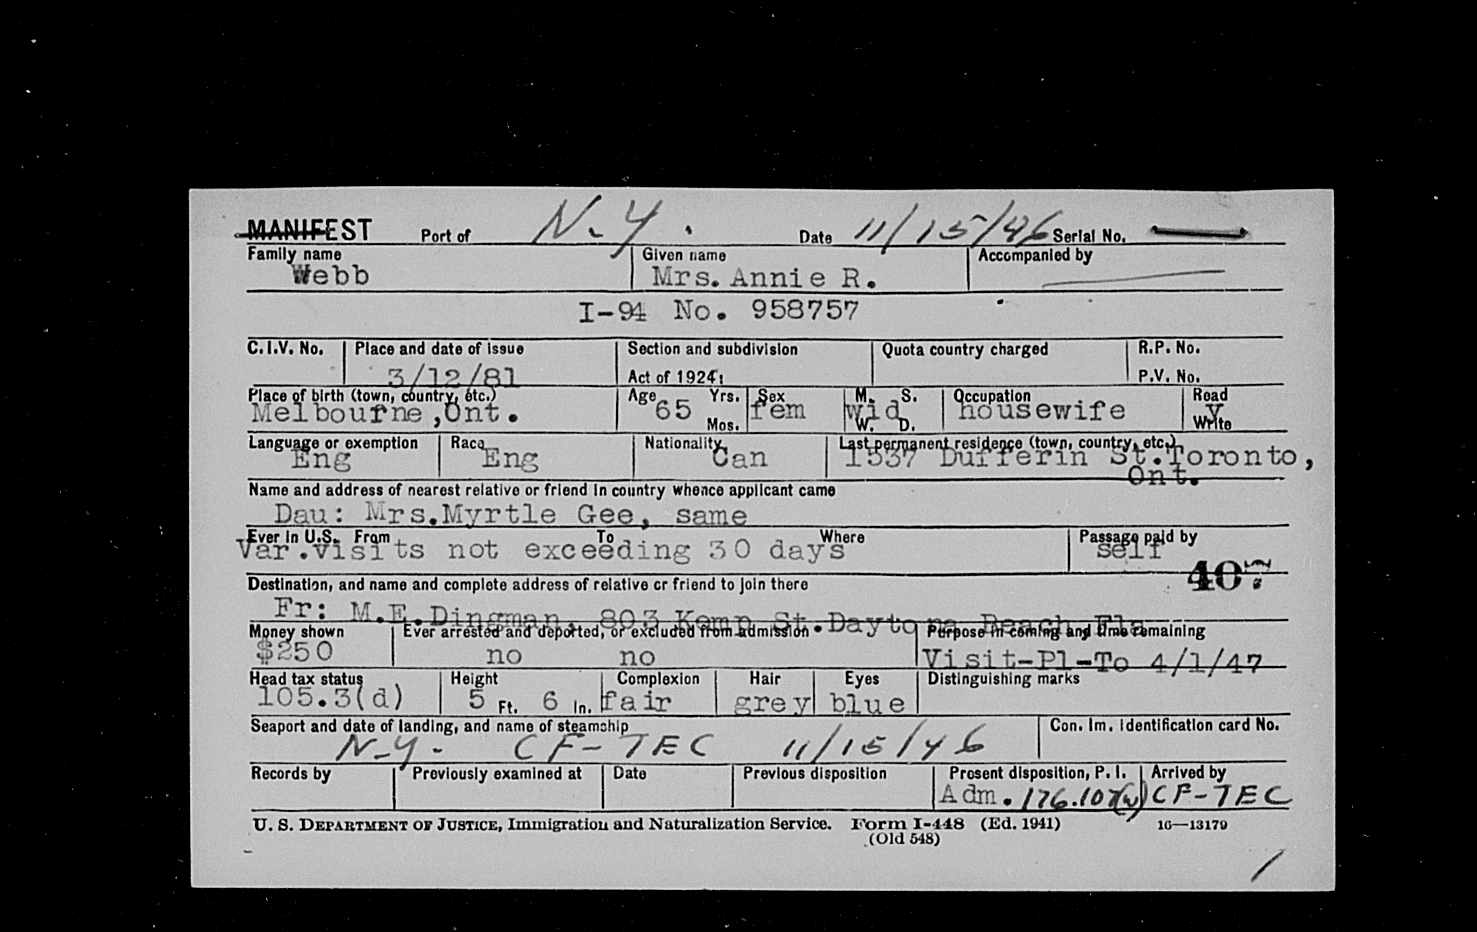 MANIFEST Port of N.Y. Date 11/15/46 Serial No.
Family name Given name Accompanied by
Webb Mrs. Annie R.
I-94 No. 958757
C.I.V. No. Place and date of issue Section and subdivision Quota country charged R.P. No.
3/12/81 Act of 1924: P.V. No.
Place of birth (town, country, etc.) Age Yrs. Sex M. S. Occupation Read
Melbourne,Ont. 65 fem wid housewife y
Mos. W. D. Write
Language or exemption Race Nationality Last permanent residence (town, country, etc.)
Eng Eng Can 1537 Dufferin St.Toronto,
Ont.
Name and address of nearest relative or friend in country whence applicant came
Dau: Mrs.Myrtle Gee, same
Ever in U.S. From To Where Passage paid by
Var.visits not exceeding 30 days self
407
Destination, and name and complete address of relative or friend to join there
Fr: M.E.Dingman, 803 Kemp St.Daytona Beach Fla
Money shown Ever arrested and deported, or excluded from admission Purpose in coming and time remaining
$250 no no Visit-Pl-To 4/1/47
Head tax status Height Complexion Hair Eyes Distinguishing marks
105.3(d) 5 Ft. 6 In. fair grey blue
Seaport and date of landing, and name of steamship Con. Im. Identification card No.
N.Y. CF-TEC 11/15/46
Records by Previously examined at Date Previous disposition Present disposition, P. I. Arrived by
Adm. 176.107(w) CF-TEC
U. S. DEPARTMENT OF JUSTICE, Immigration and Naturalization Service. Form I-448 (Ed. 1941) 16—13179
(Old 548)